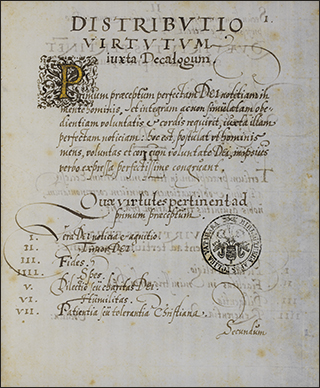 1.
DISTRIBUTIO
VIRTUTUM
iuxta Decalogum.
Primum præceptum perfectam DEI notitiam in
mente hominis, et integram ac non simulatam obe-
dientiam voluntatis et cordis requirit, iuxta illam
perfectam noticiam: hoc est postulat ut hominis
mens, voluntas et cor cum voluntate DEI, in ipsius
verbo expressa perfectissime congruant.
Quæ virtutes pertinent ad
primum præceptum.
I. Vera DEI noticia et agnitio
II. Timor DEI.
III. Fides.
IIII. Spes.
V. Dilectio seu charitas DEI.
VI. Humilitas.
VII. Patientia seu tolerantia Christiana.
Secundum